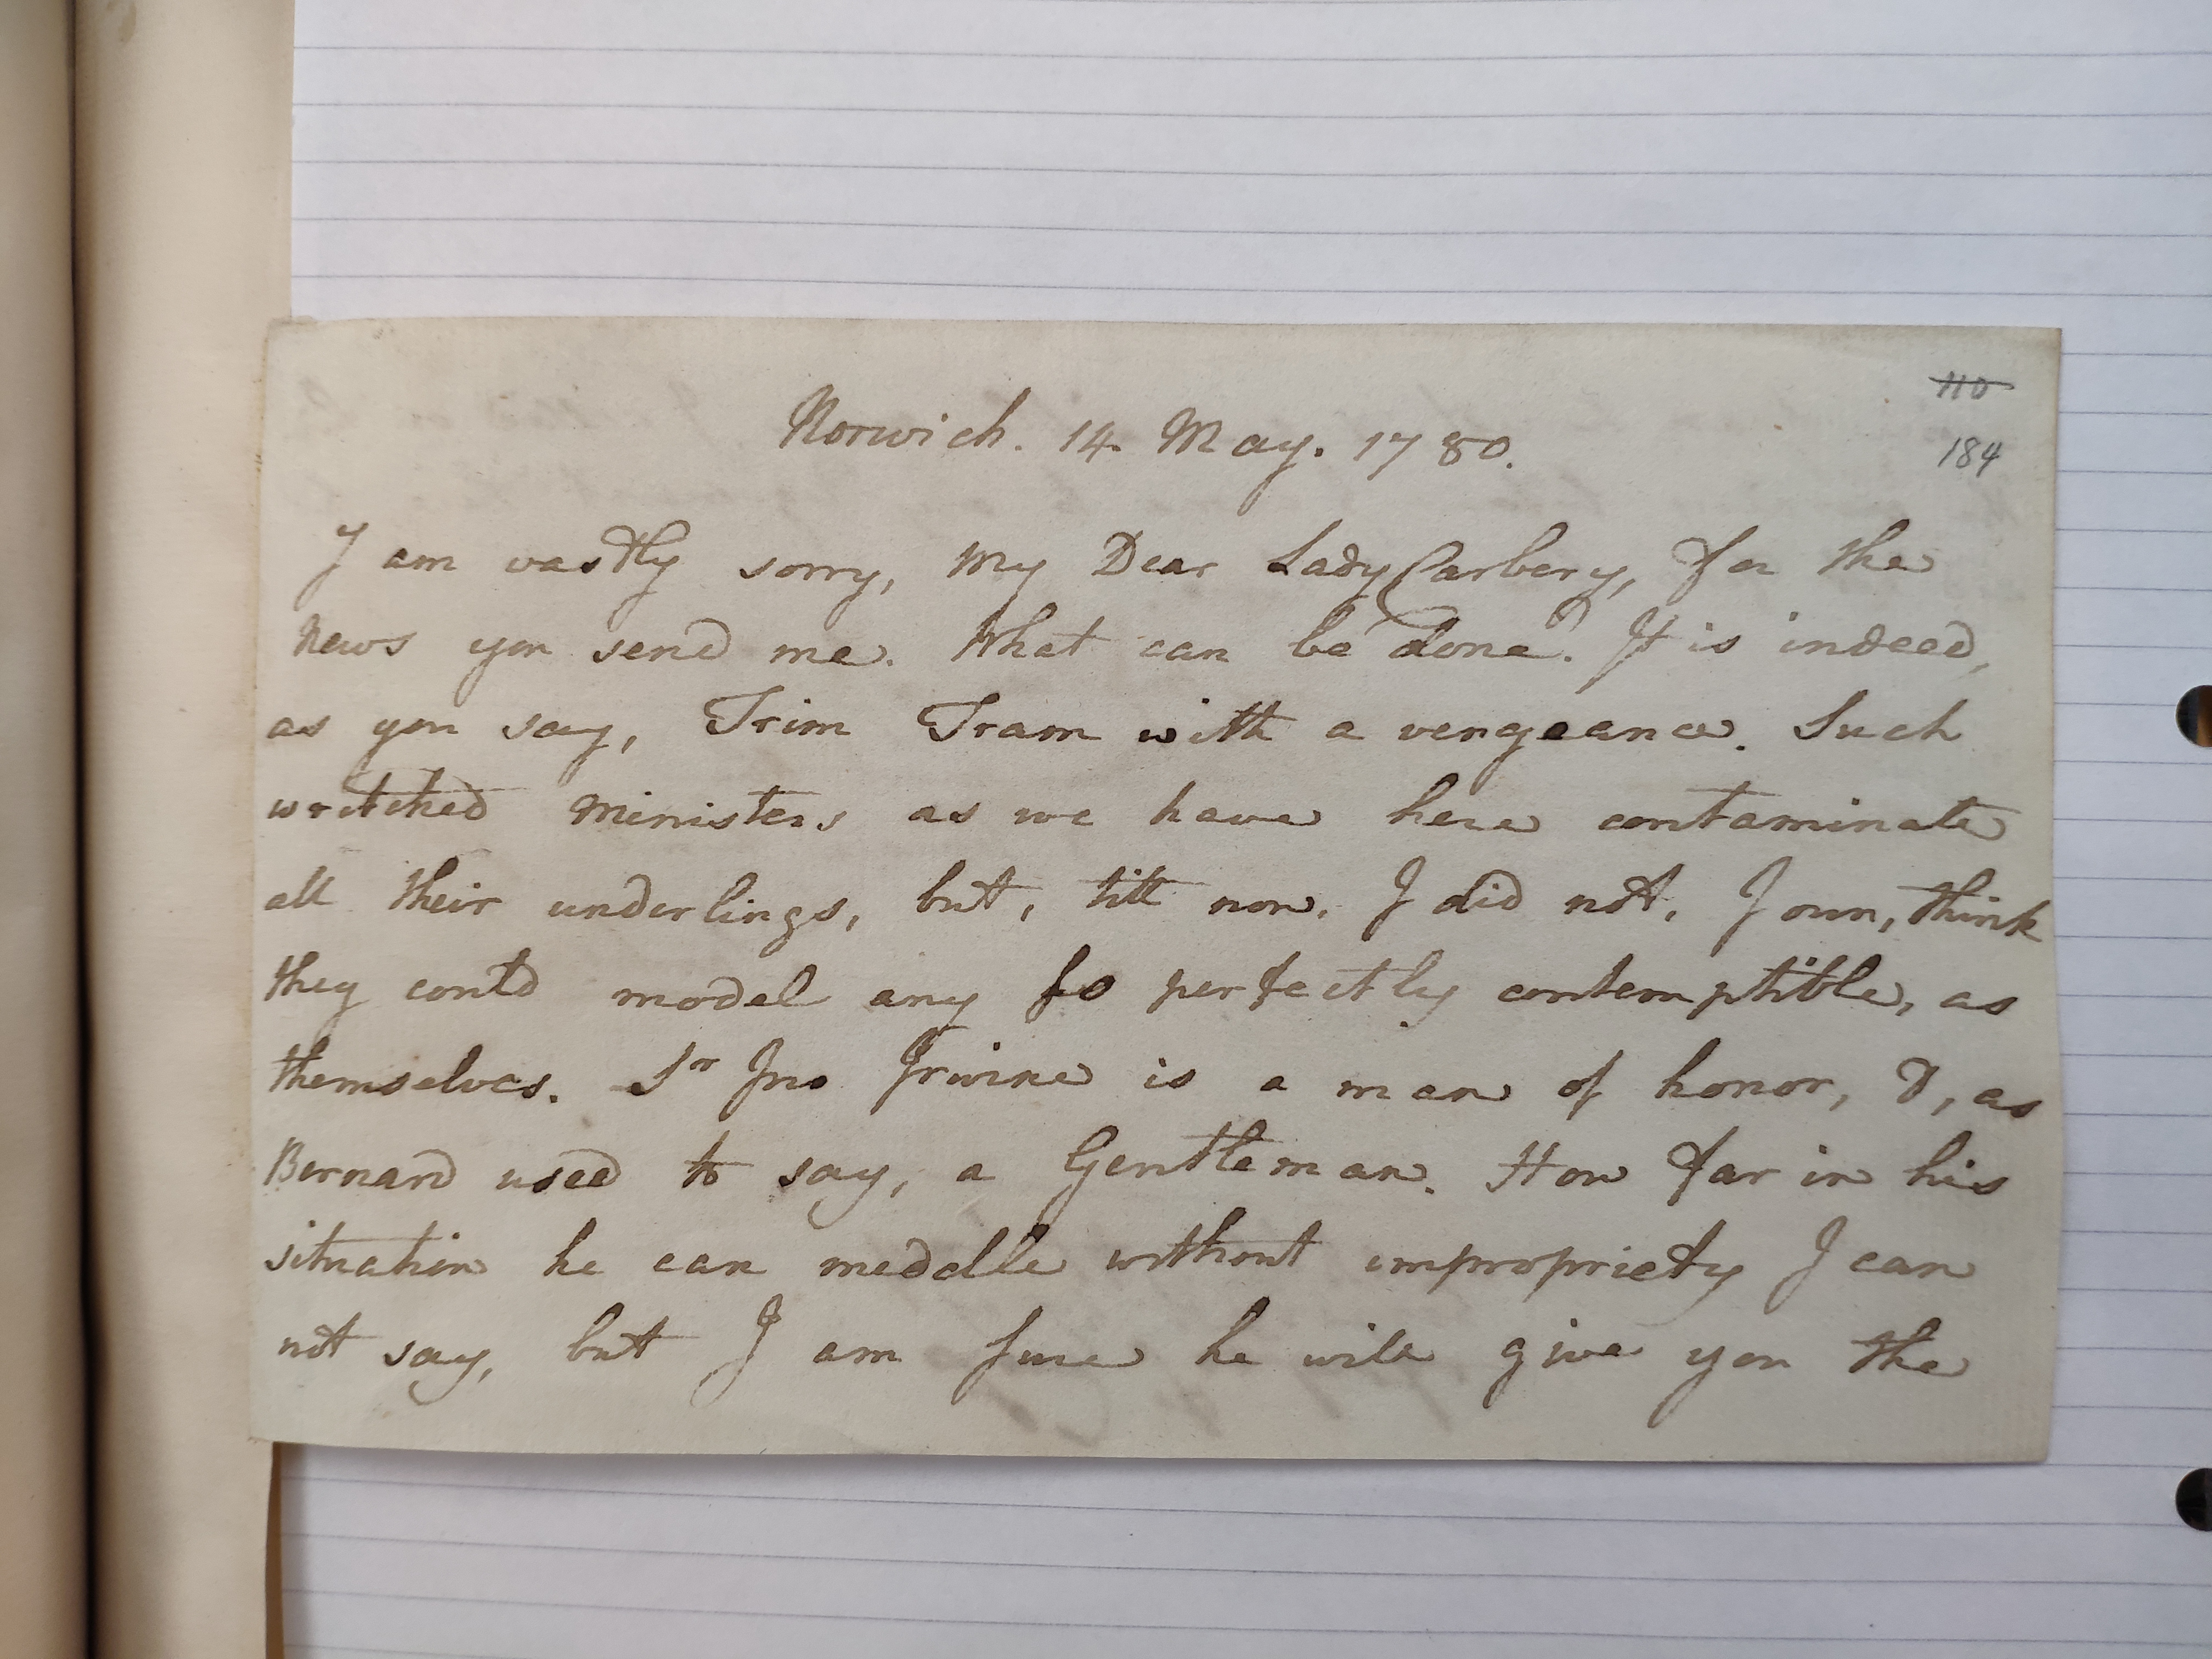 110
184
Norwich. 14 May. 1780.
I am vastly sorry, My Dear Lady Carbery, for the
News you send me. What can be done? It is indeed,
as you say, Trim Tram with a vengeance. Such
wretched Ministers as we have here contaminate
all their underlings, but, till now, I did not, I own, think
they could model any so perfectly contemptible, as
themselves. Sr Jno Irwine is a man of honor, &, as
Bernard used to say, a Gentleman. How far in his
situation he can meddle without impropriety I can
not say, but I am sure he will give you the